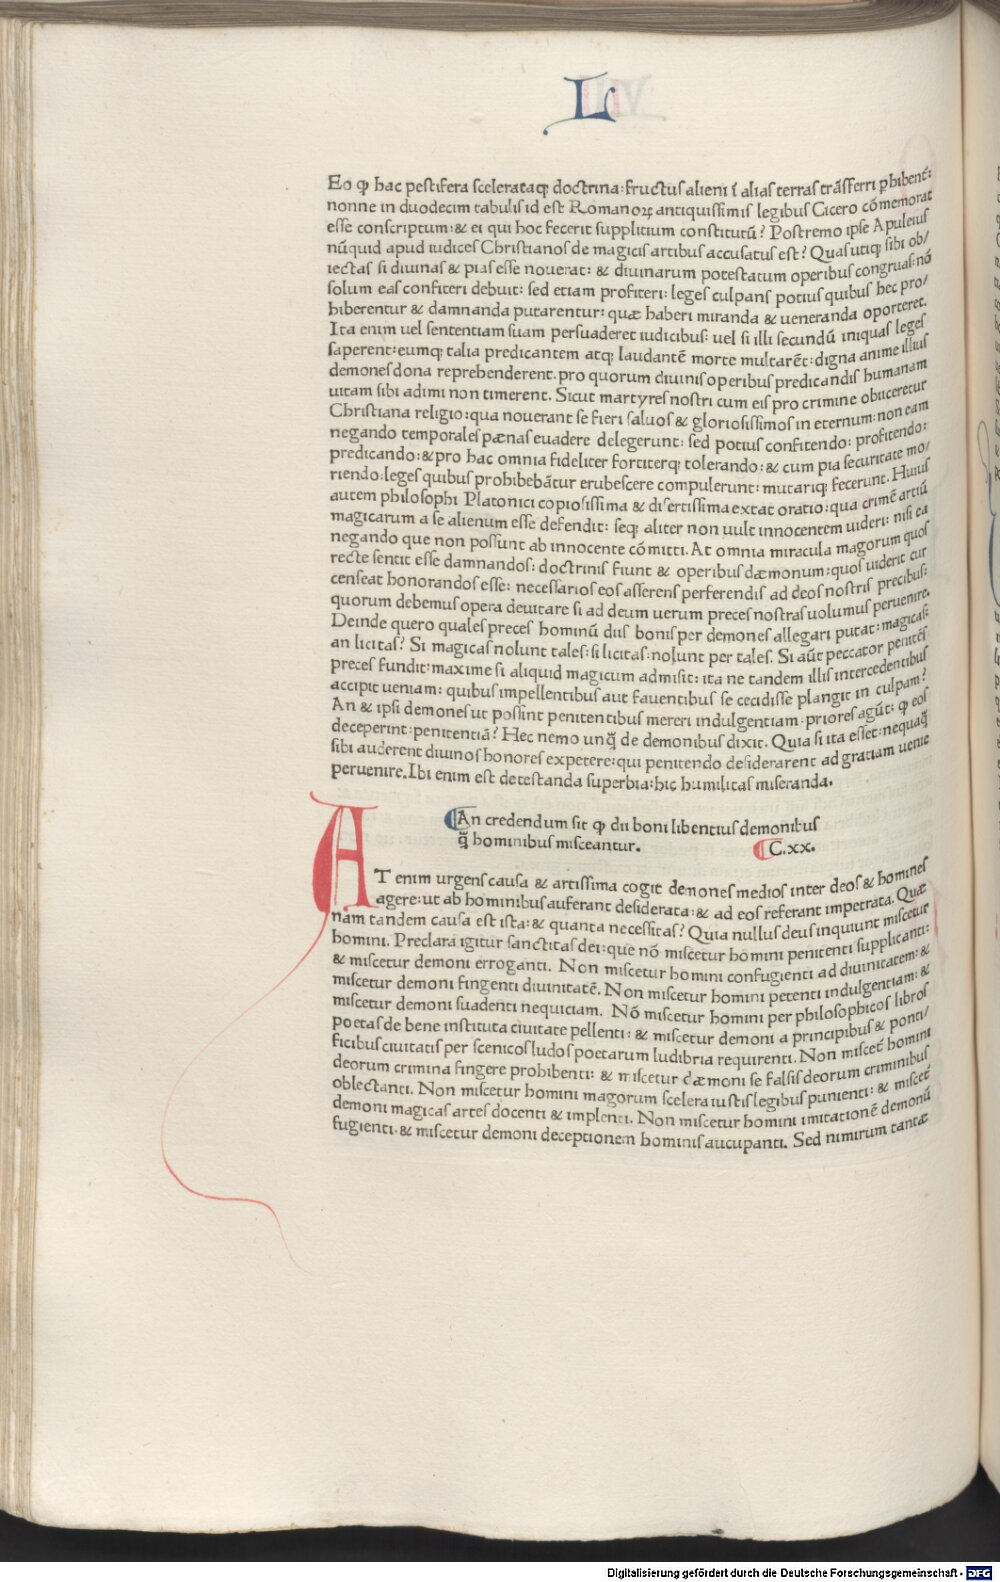 L
Eo ꝙ hac pestifera scelerataqꝫ doctrina: fructus alieni ī alias terras trāsferri ꝓhibent̄:
nonne in duodecim tabulis id est Romanoꝝ antiquissimis legibus Cicero cōmemorat
esse conscriptum: & ei qui hoc fecerit supplicium constitutū? Postremo ipse Apuleius
nūquid apud iudices Christianos de magicis artibus accusatus est? Quas utiqꝫ sibi ob/
iectas si diuinas & pias esse nouerat: & diuinarum potestatum operibus congruas: nō
solum eas confiteri debuit: sed etiam profiteri: leges culpans potius quibus hec pro/
hiberentur & damnanda putarentur: quæ haberi miranda & ueneranda oporteret.
Ita enim uel sententiam suam persuaderet iudicibus: uel si illi secundū iniquas leges
saperent: eumqꝫ talia predicantem atqꝫ laudantē morte multarēt: digna anime illius
demones dona reprehenderent. pro quorum diuinis operibus predicandis humanam
uitam sibi adimi non timerent. Sicut martyres nostri cum eis pro crimine obiiceretur
Christiana religio: qua nouerant se fieri saluos & gloriosissimos in eternum: non eam
negando temporales pænas euadere delegerunt: sed potius confitendo: profitendo:
predicando: & pro hac omnia fideliter fortiterqꝫ tolerando: & cum pia securitate mo/
riendo: leges quibus prohibebātur erubescere compulerunt: mutariqꝫ fecerunt. Huius
autem philosophi Platonici copiosissima & disertissima extat oratio: qua crimē artiū
magicarum a se alienum esse defendit: seqꝫ aliter non uult innocentem uideri: nisi ea
negando que non possunt ab innocente cōmitti. At omnia miracula magorum quos
recte sentit esse damnandos: doctrinis fiunt & operibus dæmonum: quos uiderit cur
censeat honorandos esse: necessarios eos asserens perferendis ad deos nostris precibus:
quorum debemus opera deuitare si ad deum uerum preces nostras uolumus peruenire.
Deinde quero quales preces hominū diis bonis per demones allegari putat: magicas:
an licitas? Si magicas nolunt tales: si licitas: nolunt per tales. Si aūt peccator penitēs
preces fundit: maxime si aliquid magicum admisit: ita ne tandem illis intercedentibus
accipit ueniam: quibus impellentibus aut fauentibus se cecidisse plangit in culpam?
An & ipsi demones ut possint penitentibus mereri indulgentiam. priores agūt: ꝙ eos
deceperint: penitentiā? Hec nemo unq̄ de demonibus dixit. Quia si ita esset: nequaq̄
sibi auderent diuinos honores expetere: qui penitendo desiderarent ad gratiam uenie
peruenire. Ibi enim est detestanda superbia: hic humilitas miseranda.
An credendum sit ꝙ dii boni libentius demonibus
q̄ hominibus misceantur. C.xx.
AT enim urgens causa & artissima cogit demones medios inter deos & homines
agere: ut ab hominibus auferant desiderata: & ad eos referant impetrata. Quæ
nam tandem causa est ista: & quanta necessitas? Quia nullus deus inquiunt miscetur
homini. Preclara igitur sanctitas dei: que nō miscetur homini penitenti supplicanti:
& miscetur demoni erroganti. Non miscetur homini confugienti ad diuinitatem: &
miscetur demoni fingenti diuinitatē. Non miscetur homini petenti indulgentiam: &
miscetur demoni suadenti nequiciam. Nō miscetur homini per philosophicos libros
poetas de bene instituta ciuitate pellenti: & miscetur demoni a principibus & ponti/
ficibus ciuitatis per scenicos ludos poetarum ludibria requirenti. Non miscet̄ homini
deorum crimina fingere prohibenti: & miscetur dæmoni se falsis deorum criminibus
oblectanti. Non miscetur homini magorum scelera iustis legibus punienti: & miscet̄
demoni magicas artes docenti & implenti. Non miscetur homini imitationē demonū
fugienti. & miscetur demoni deceptionem hominis aucupanti. Sed nimirum tantæ
Digitalisierung gefördert durch die Deutsche Forschungsgemeinschaft - DFG